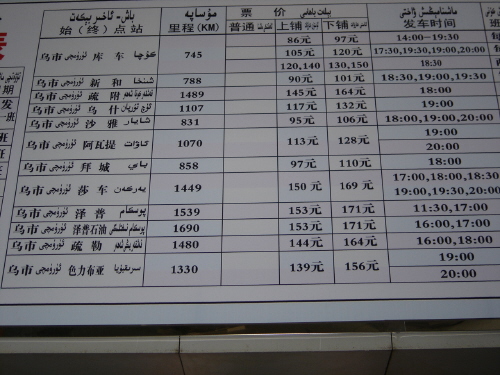 باش- ئاخىر بېكەت مۇساپە票价 پىلەت باھاسى ماشىنا مېڭىش ۋاقتى
始(终)点站 里程(KM) 普通 上铺 下铺 发车时间
86元 97元 14:00--19:30
乌市 ئۈرۈمچى 库车 كۇچا 745 105元 120元 17:30,19:30,19:00,20:00
120,140 130,150 18:30
乌市 ئۈرۈمچى 新和 788 90元 101元 18:30,19:00,19:30
乌市 ئۈرۈمچى 疏附 1489 145元 164元 18:00
乌市 ئۈرۈمچى 乌什 1107 117元 132元 19:00
乌市 ئۈرۈمچى 沙雅 شايار 831 95元 106元 18:00,19:00,20:00
乌市 ئۈرۈمچى 阿瓦提 ئاۋات 1070 113元 128元 19:00
20:00
乌市 ئۈرۈمچى 拜城 باي 858 97元 110元 18:00
乌市 ئۈرۈمچى 莎车 يەركەن 1449 150元 169元 17:00,18:00,18:30
19:00,19:30,20:00
乌市 ئۈرۈمچى 泽普 پوسكام 1539 153元 171元 11:30,17:00
乌市 ئۈرۈمچى 泽普石油 1690 153元 171元 16:00,17:00
乌市 ئۈرۈمچى 疏勒 1480 144元 164元 16:00,18:00
乌市 ئۈرۈمچى 色力布亚 1330 139元 156元 19:00
20:00